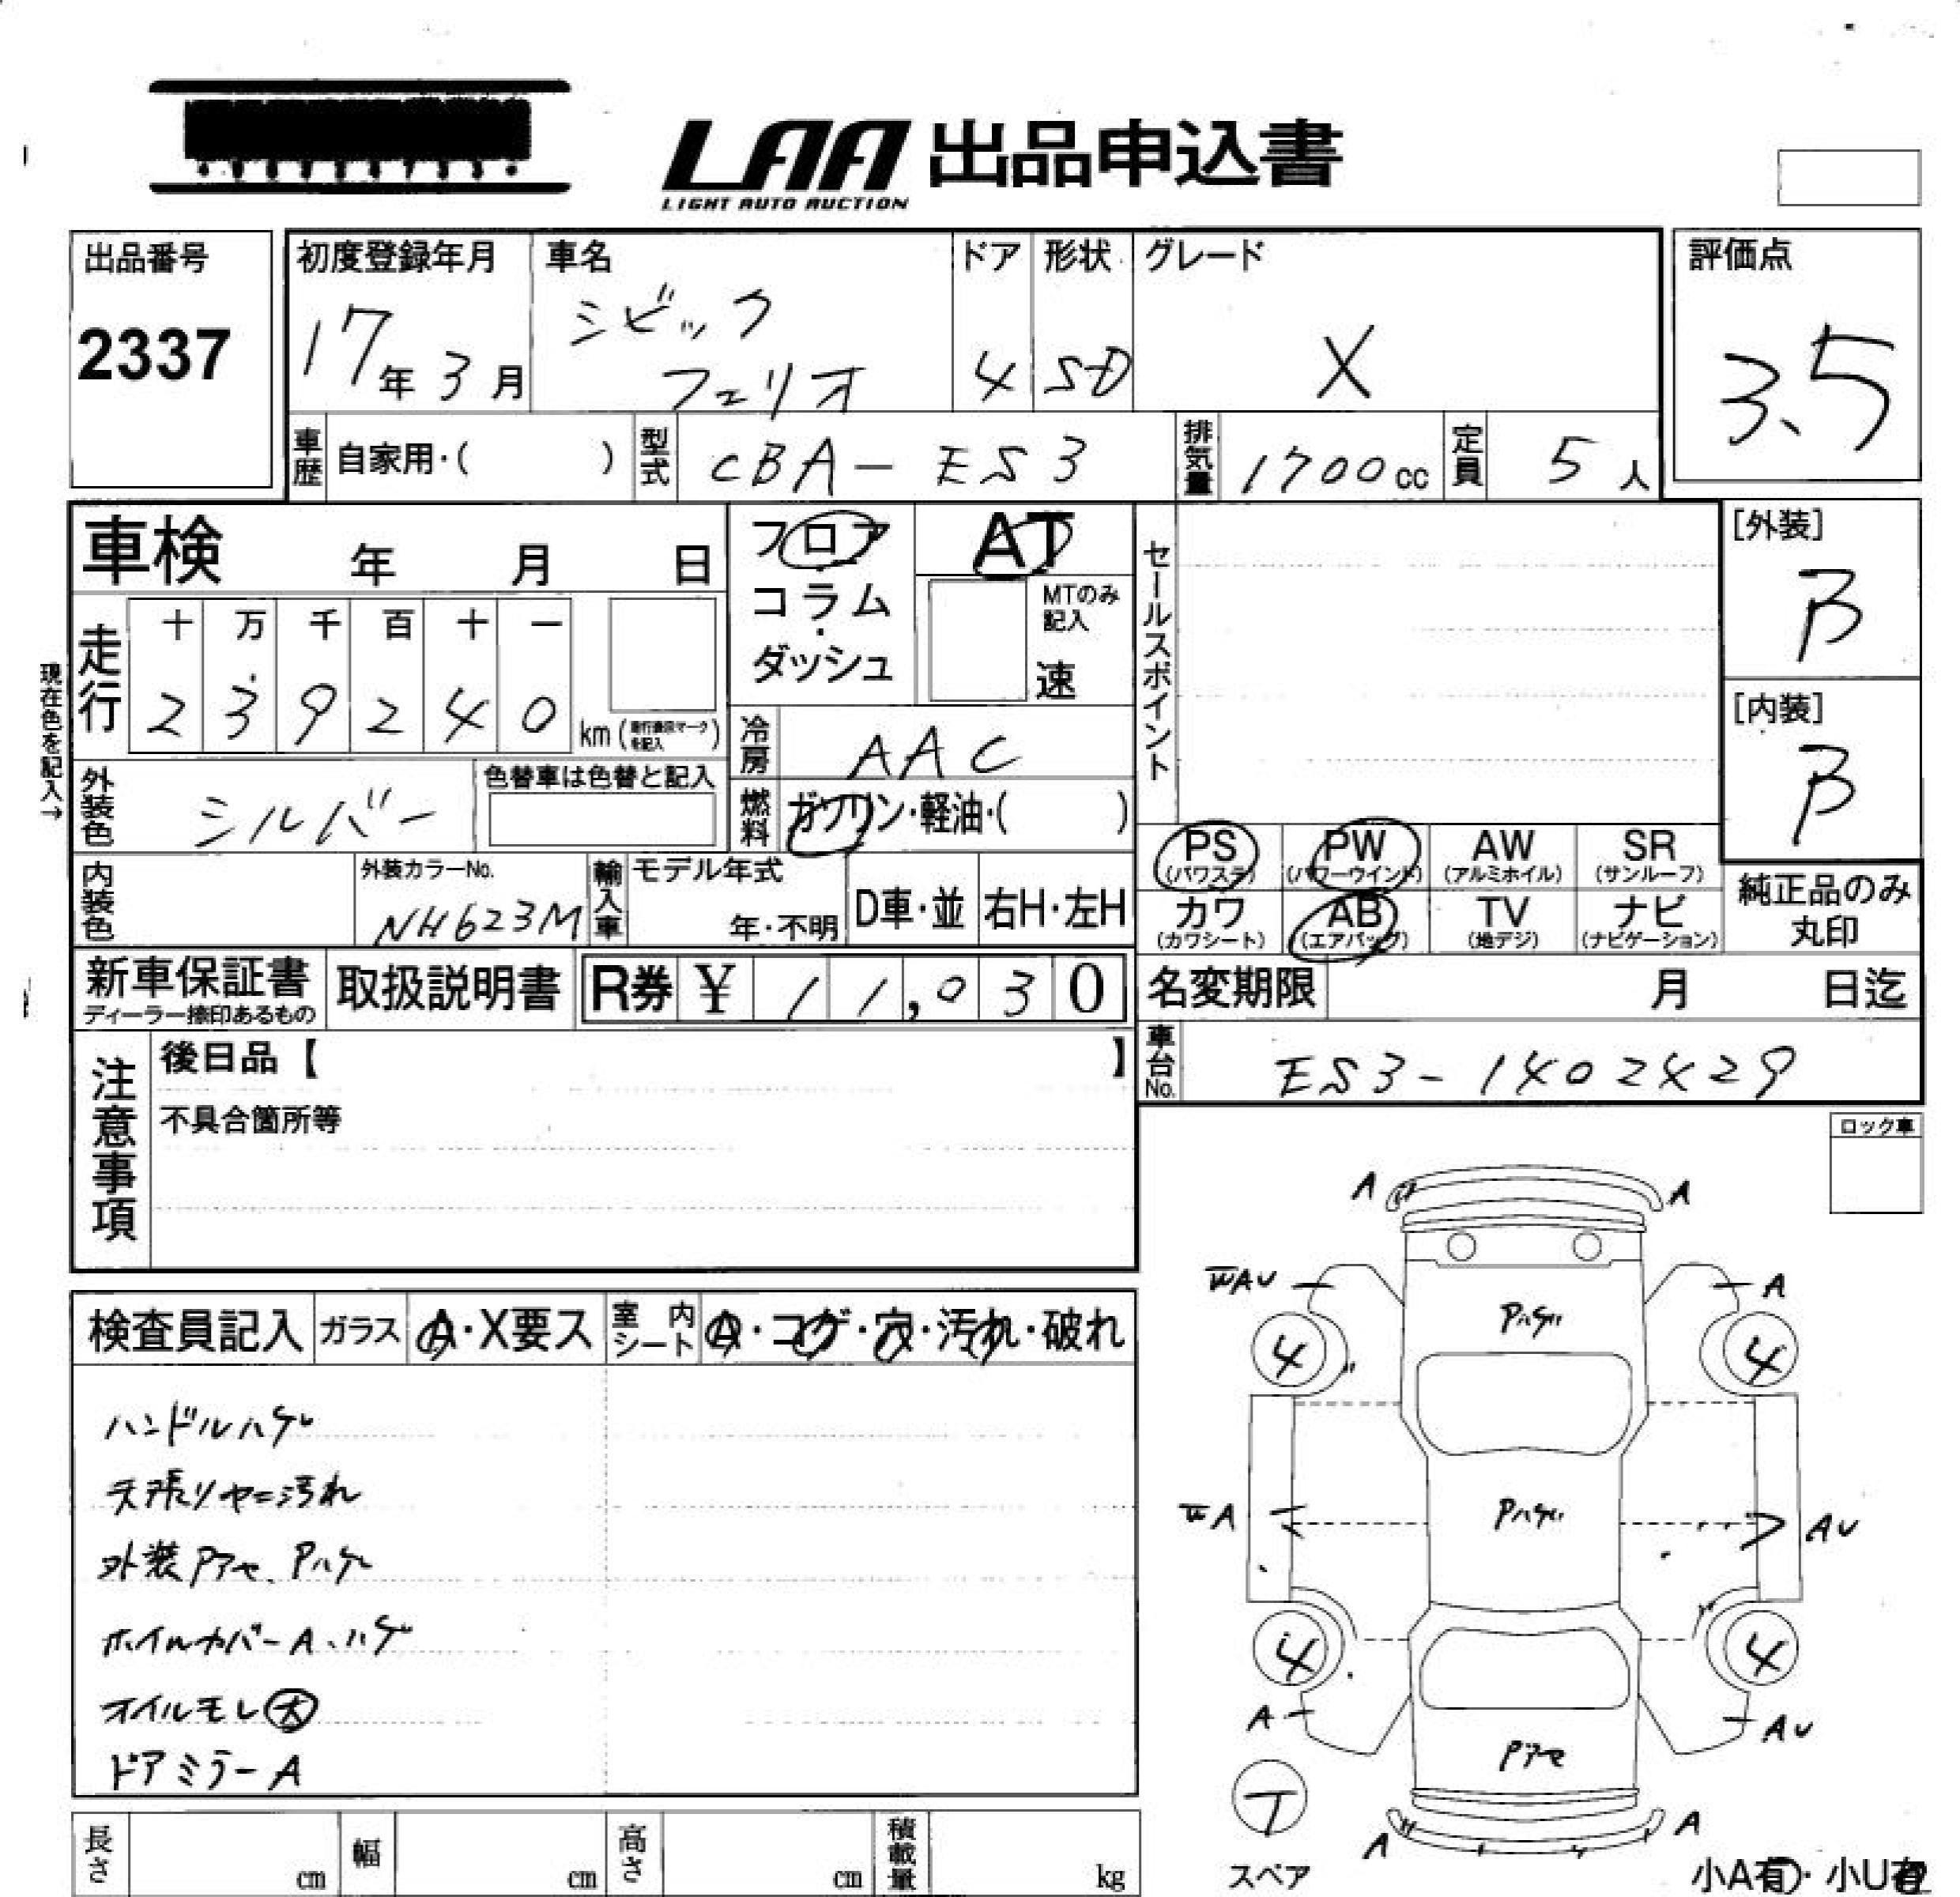 LAA 出品申込書
LIGHT AUTO AUCTION
出品番号
2337
初度登録年月
17年3月
車名
シビック
フェリオ
ドア
4
形状
SD
グレード
X
評価点
3.5
車歴
自家用・( )
型式
CBA-ES3
排気量
1700cc
定員
5人
車検 年 月 日
走行
十 万 千 百 十 一
2 3 9 2 4 0 km
現在色を記入→
フロア
コラム
・
ダッシュ
AT
MTのみ
記入
速
セールスポイント
[外装]
B
[内装]
B
冷房
AAC
燃料
ガソリン・軽油・( )
外装色
シルバー
色替車は色替と記入
内装色
外装カラーNo.
NH623M
輸入車
モデル年式
年・不明
D車・並
右H・左H
PS
(パワステ)
PW
(パワーウインド)
AW
(アルミホイル)
SR
(サンルーフ)
カワ
(カワシート)
AB
(エアバッグ)
TV
(地デジ)
ナビ
(ナビゲーション)
純正品のみ
丸印
新車保証書
ディーラー捺印あるもの
取扱説明書
R券 ¥ 11,030
名変期限 月 日迄
車台No.
ES3-1402429
注意事項
後日品【 】
不具合箇所等
ロック車
検査員記入
ガラス
A・X要ス
室内シート
A・コゲ・穴・汚れ・破れ
ハンドルハゲ
天張りヤニ汚れ
外装Pアセ、Pハゲ
ホイルカバーA、ハゲ
オイルモレ大
ドアミラーA
A A
WAU A
Pハゲ
4 4
Pハゲ
WA AU
4 4
A AU
Pアセ
T
A A
スペア
小A有・小U有
長さ cm
幅 cm
高さ cm
積載量 kg